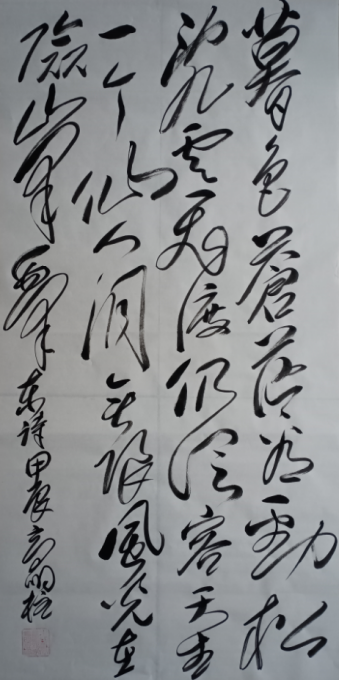 暮色苍茫看劲松
乱云飞渡仍从容天生
一个仙人洞无限风光在
险峰
东诗甲辰